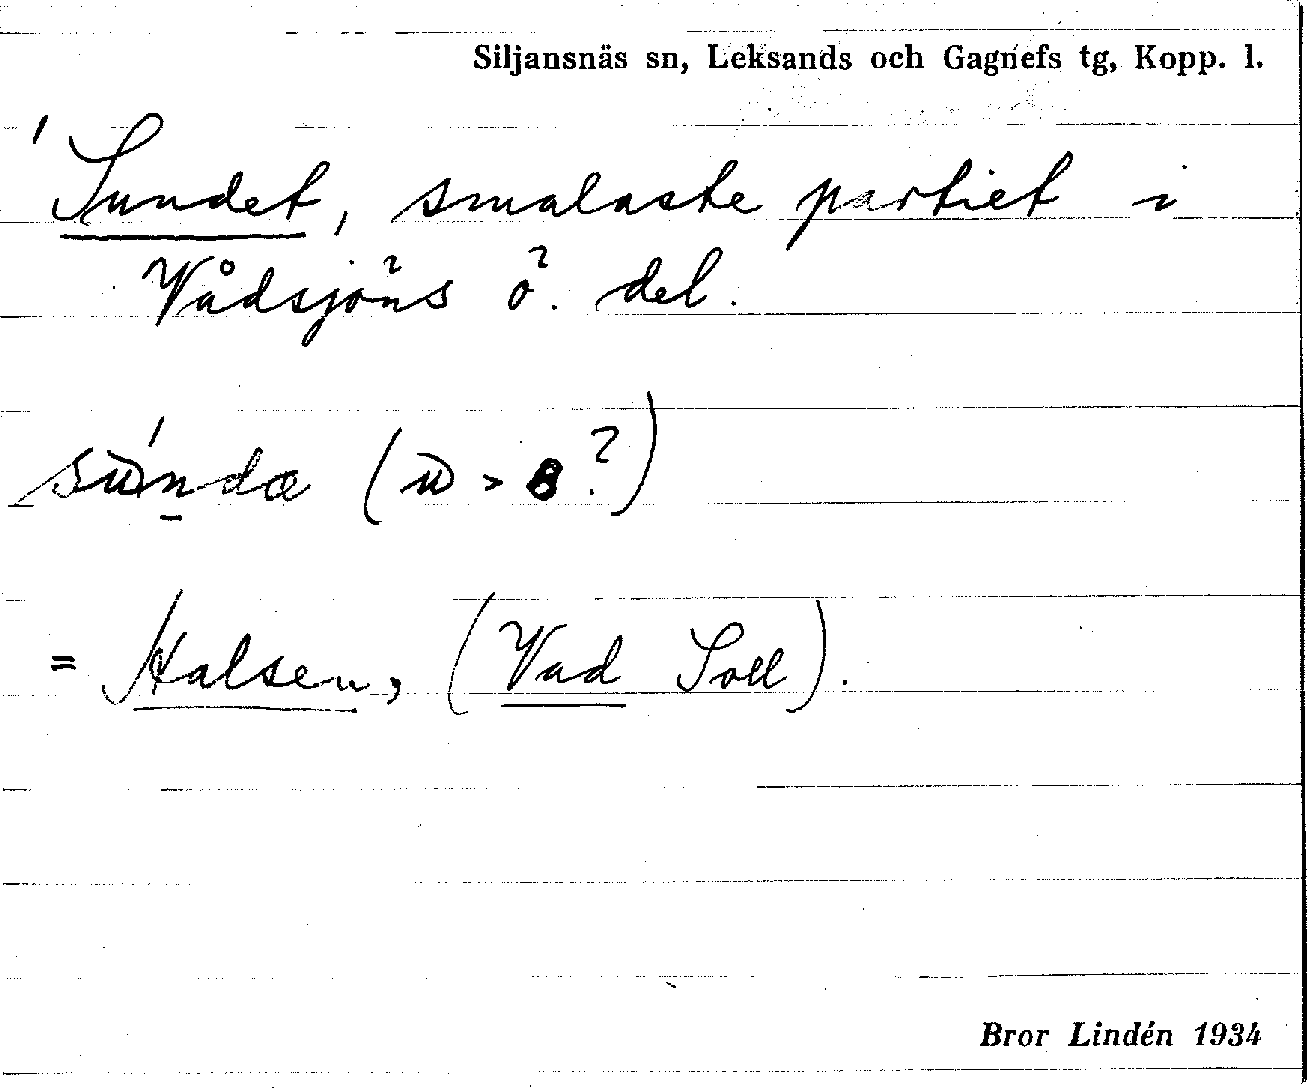 Siljansnäs sn, Leksands och Gagnefs tg, Kopp. l.
Sundet, smalaste partiet i
Vådsjöns ö. del.
= Halsen, (Vad Soll).
Bror Lindén 1934